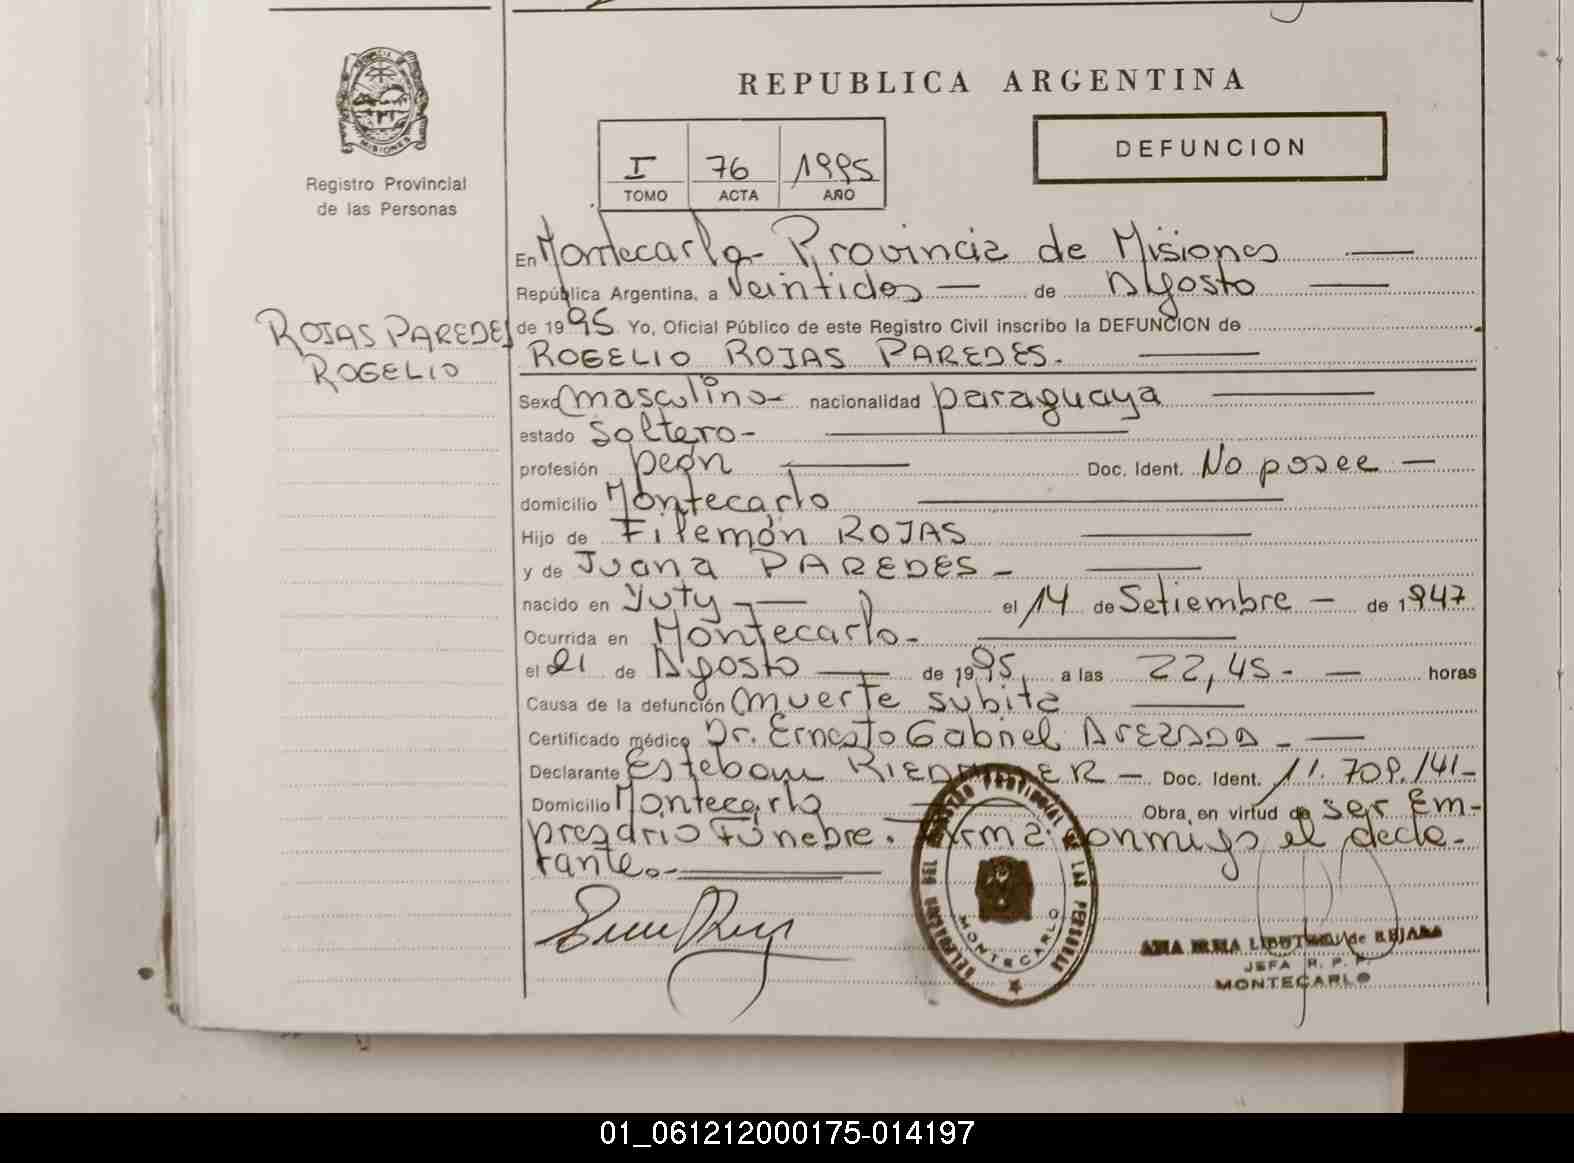 REPUBLICA ARGENTINA
DEFUNCION
PROVINCIA
MISIONES
Registro Provincial
de las Personas
I 76 1995
TOMO ACTA AÑO
En Montecarlo- Provincia de Misiones
República Argentina, a Veintidos de Agosto
de 1995 Yo, Oficial Público de este Registro Civil inscribo la DEFUNCION de
ROJAS PAREDES
ROGELIO
ROGELIO ROJAS PAREDES.
Sexo masculino- nacionalidad paraguaya
estado Soltero-
profesión peón Doc. Ident. No posee
domicilio Montecarlo
Hijo de Filemón ROJAS
y de Juana PAREDES-
nacido en Yuty el 14 de Setiembre de 1947
Ocurrida en Montecarlo-
el 21 de Agosto de 1995 a las 22,45- horas
Causa de la defunción muerte subita
Certificado médico Dr. Ernesto Gabriel
Declarante Esteban Doc. Ident. 11.709.141-
Domicilio Montecarlo Obra en virtud de ser Em-
presario Fúnebre. Firma conmigo el decla-
rante.
DELEGACION DEL REGISTRO PROVINCIAL DE LAS PERSONAS
MONTECARLO
JEFA R. P. P.
MONTECARLO
01_061212000175-014197